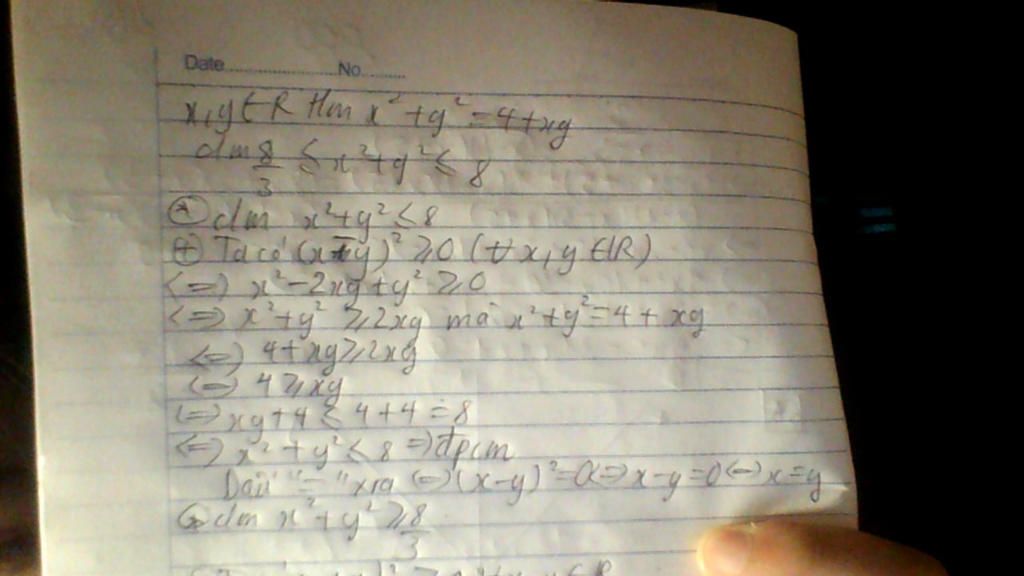 Date............No.........
x, y ∈ R t/m x² + y² = 4 + xy
c/m 8/3 ≤ x² + y² ≤ 8
* c/m x² + y² ≤ 8
+ Ta có (x - y)² ≥ 0 (∀ x, y ∈ R)
<=> x² - 2xy + y² ≥ 0
<=> x² + y² ≥ 2xy mà x² + y² = 4 + xy
<=> 4 + xy ≥ 2xy
<=> 4 ≥ xy
<=> xy + 4 ≤ 4 + 4 = 8
<=> x² + y² ≤ 8 => đpcm
Dấu "=" xra <=> (x - y)² = 0 <=> x - y = 0 <=> x = y
* c/m x² + y² ≥ 8/3